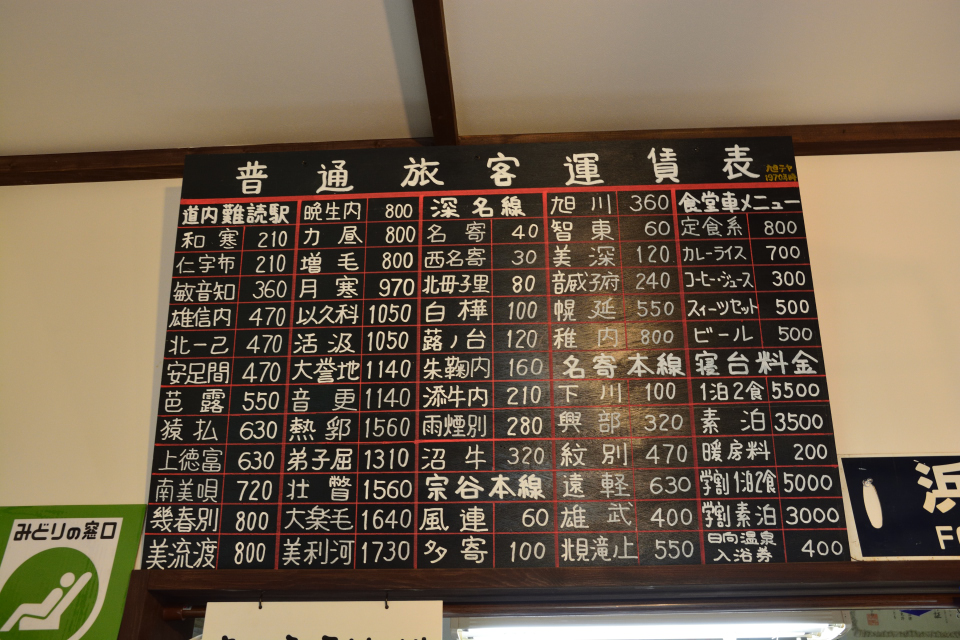 普通旅客運賃表
道内難読駅
和寒 210
仁宇布 210
敏音知 360
雄信内 470
北一已 470
安足間 470
芭露 550
猿払 630
上徳富 630
南美唄 720
幾春別 800
美流渡 800
晩生内 800
力昼 800
増毛 800
月寒 970
以久科 1050
活汲 1050
大誉地 1140
音更 1140
熱郛 1560
弟子屈 1310
壮瞥 1560
大楽毛 1640
美利河 1730
深名線
名寄 40
西名寄 30
北母子里 80
白樺 100
蕗ノ台 120
朱鞠内 160
添牛内 210
雨煙別 280
沼牛 320
宗谷本線
風連 60
多寄 100
旭川 360
智東 60
美深 120
音威子府 240
幌延 550
稚内 800
名寄本線
下川 100
興部 320
紋別 470
遠軽 630
雄武 400
北見滝ノ上 550
食堂車メニュー
定食系 800
カレーライス 700
コーヒー・ジュース 300
スイーツセット 500
ビール 500
寝台料金
1泊2食 5500
素泊 3500
暖房料 200
学割1泊2食 5000
学割素泊 3000
日向温泉入浴券 400
みどりの窓口
浜